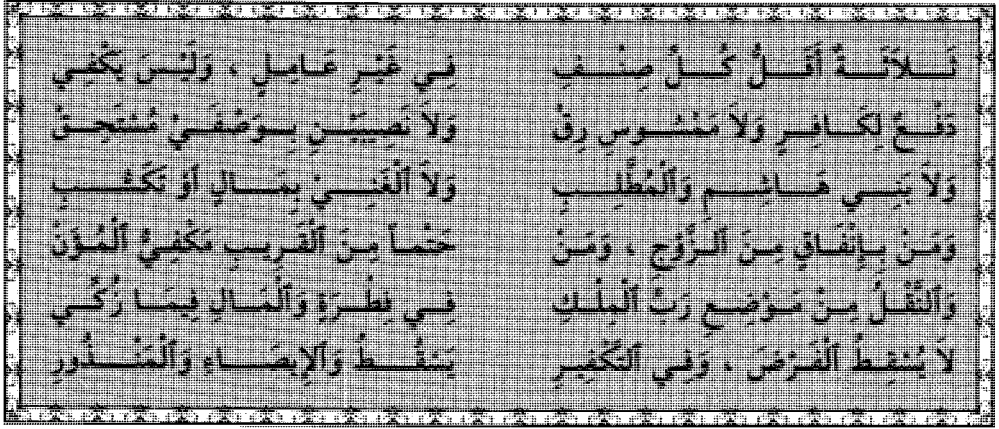 ثَلاَثَةٌ أَقَلُّ كُلِّ صِنْفِ فِي غَيْرِ عَامِلٍ ، وَلَيْسَ يَكْفِي
دَفْعٌ لِكَافِرٍ وَلاَ مَمْسُوسِ رِقّْ وَلاَ نَصِيبَيْنِ بِوَصْفَيْ مُسْتَحِقّْ
وَلاَ بَنِي هَاشِمٍ وَٱلْمُطَّلِبِ وَلاَ ٱلْغَنِيْ بِمَالٍ ٱوْ تَكَسُّبِ
وَمَنْ بِإِنْفَاقٍ مِنَ ٱلزَّوْجِ ، وَمَنْ حَتْماً مِنَ ٱلْقَرِيبِ مَكْفِيُّ ٱلْمُؤَنْ
وَٱلنَّقْلُ مِنْ مَوْضِعِ رَبِّ ٱلْمِلْكِ فِي فِطْرَةٍ وَٱلْمَالِ فِيمَا زُكِّي
لاَ يُسْقِطُ ٱلْفَرْضَ ، وَفِي ٱلتَّكْفِيرِ يَسْقُطُ وَٱلإِيصَاءِ وَٱلْمَنْذُورِ